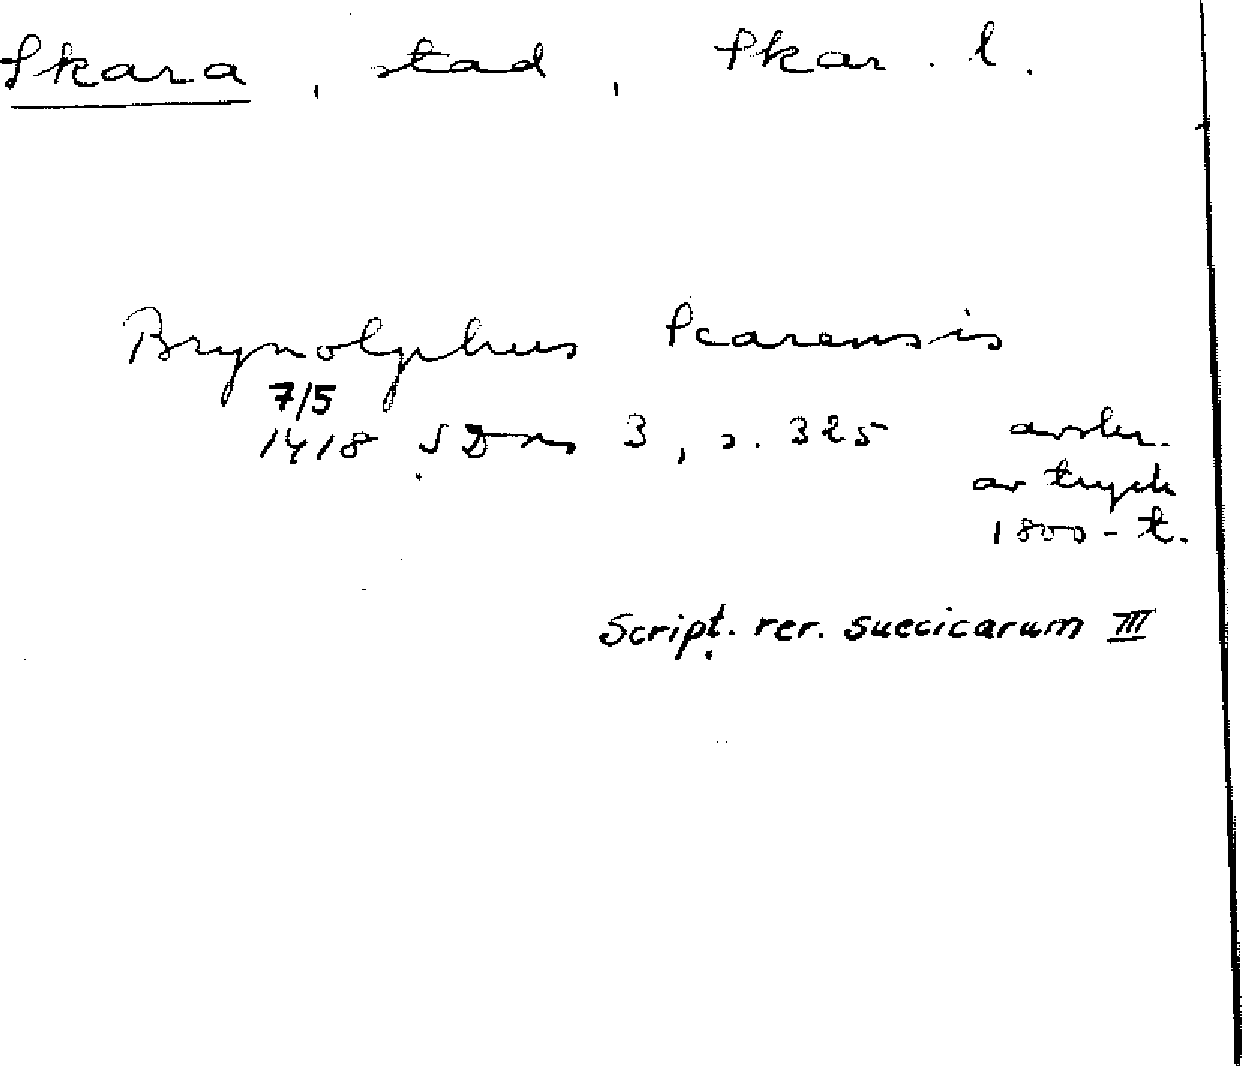 Skara, stad, Skar. l.
Brynolphus Scarensis
7/5
1418 SDns 3, s. 325 avskr.
av tryck
1800-t.
Script. rer. suecicarum III